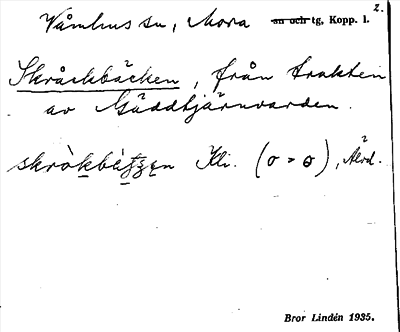 2.
Våmhus sn, Mora sn och tg, Kopp. l.
Skråckbäcken, från trakten
av Gäddtjärnvarden.
Kli. (o = o), Älvd.
Bror Lindén 1935.